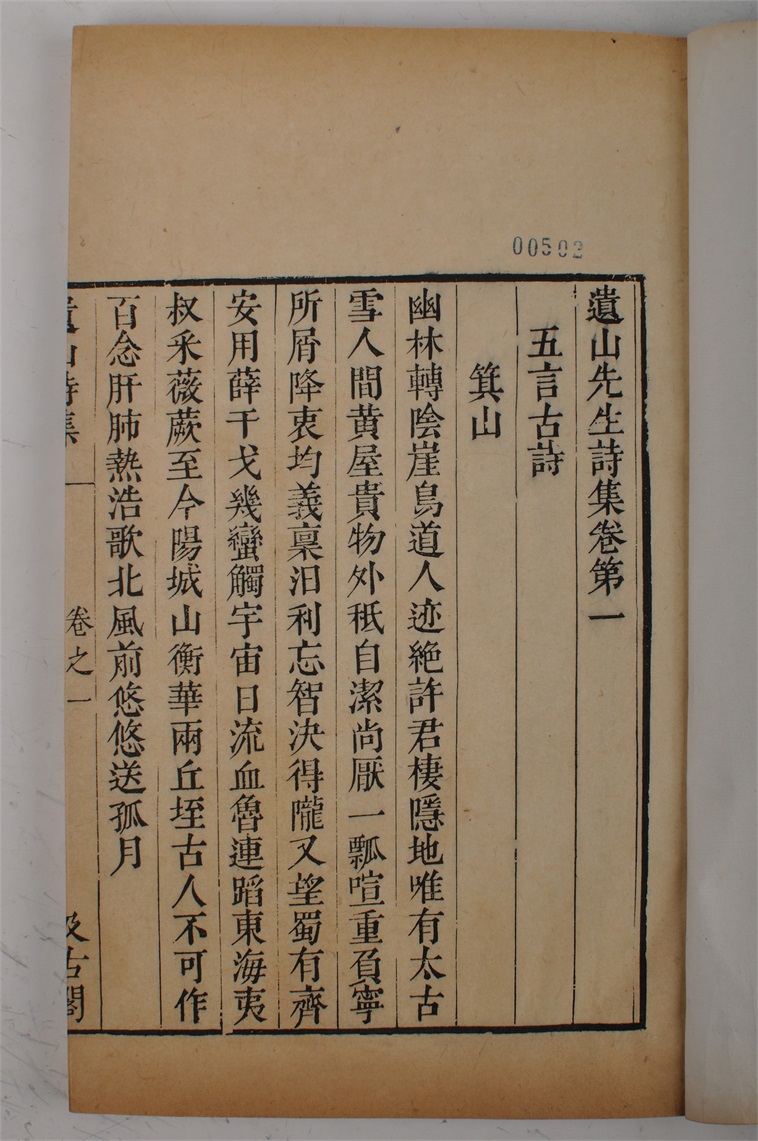 00502
遺山先生詩集卷第一
五言古詩
箕山
幽林轉陰崖鳥道人迹絶許君棲隱地唯有太古
雪人間黄屋貴物外秪自潔尚厭一瓢喧重負寧
所屑降衷均義稟汨利忘智決得隴又望蜀有齊
安用薛干戈幾蠻觸宇宙日流血魯連蹈東海夷
叔采薇蕨至今陽城山衡華兩丘垤古人不可作
百念肝肺熱浩歌北風前悠悠送孤月
遺山詩集 卷之一 汲古閣